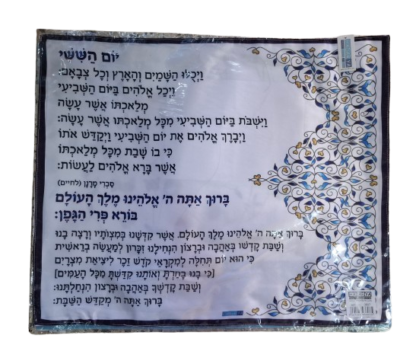 יוֹם הַשִּׁשִּׁי
וַיְכֻלּוּ הַשָּׁמַיִם וְהָאָרֶץ וְכָל צְבָאָם:
וַיְכַל אֱלֹהִים בַּיּוֹם הַשְּׁבִיעִי
מְלַאכְתּוֹ אֲשֶׁר עָשָׂה
וַיִּשְׁבֹּת בַּיּוֹם הַשְּׁבִיעִי מִכָּל מְלַאכְתּוֹ אֲשֶׁר עָשָׂה:
וַיְבָרֶךְ אֱלֹהִים אֶת יוֹם הַשְּׁבִיעִי וַיְקַדֵּשׁ אֹתוֹ
כִּי בוֹ שָׁבַת מִכָּל מְלַאכְתּוֹ
אֲשֶׁר בָּרָא אֱלֹהִים לַעֲשׂוֹת:
סַבְרִי מָרָנָן (לחיים)
בָּרוּךְ אַתָּה ה' אֱלֹהֵינוּ מֶלֶךְ הָעוֹלָם
בּוֹרֵא פְּרִי הַגֶּפֶן:
בָּרוּךְ אַתָּה ה' אֱלֹהֵינוּ מֶלֶךְ הָעוֹלָם. אֲשֶׁר קִדְּשָׁנוּ בְּמִצְוֹתָיו וְרָצָה בָנוּ
וְשַׁבַּת קָדְשׁוֹ בְּאַהֲבָה וּבְרָצוֹן הִנְחִילָנוּ זִכָּרוֹן לְמַעֲשֵׂה בְרֵאשִׁית
כִּי הוּא יוֹם תְּחִלָּה לְמִקְרָאֵי קֹדֶשׁ זֵכֶר לִיצִיאַת מִצְרָיִם
[כִּי בָנוּ בָחַרְתָּ וְאוֹתָנוּ קִדַּשְׁתָּ מִכָּל הָעַמִּים]
וְשַׁבַּת קָדְשְׁךָ בְּאַהֲבָה וּבְרָצוֹן הִנְחַלְתָּנוּ:
בָּרוּךְ אַתָּה ה' מְקַדֵּשׁ הַשַּׁבָּת: